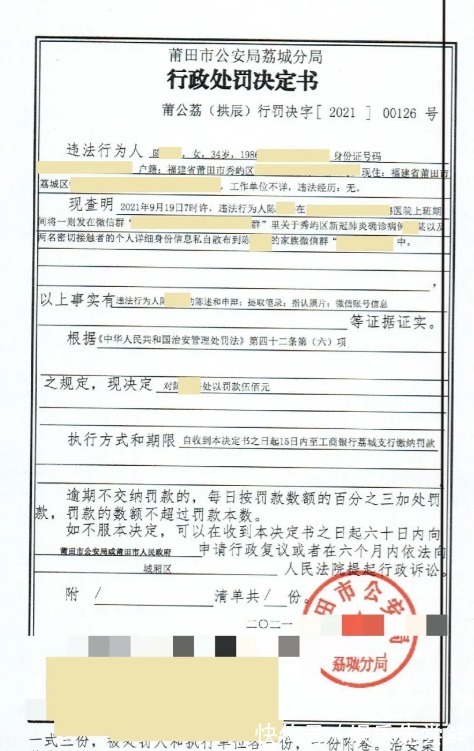 莆田市公安局荔城分局
行政处罚决定书
莆公荔（拱辰）行罚决字[ 2021 ] 00126 号
违法行为人 陈 ，女，34岁，1986 身份证号码
户籍：福建省莆田市秀屿区 现住：福建省莆田市
荔城区 ，工作单位不详，违法经历：无。
现查明 2021年9月19日7时许，违法行为人陈 在 医院上班期
间将一则发在微信群“ 群”里关于秀屿区新冠肺炎确诊病例 某以及
两名密切接触者的个人详细身份信息私自散布到陈 的家族微信群“ 中。
以上事实有 违法行为人陈 的陈述和申辩；提取笔录；指认照片；微信账号信息
等证据证实。
根据 《中华人民共和国治安管理处罚法》第四十二条第（六）项
之规定，现决定 对陈 处以罚款伍佰元
执行方式和期限 自收到本决定书之日起15日内至工商银行荔城支行缴纳罚款
逾期不交纳罚款的，每日按罚款数额的百分之三加处罚
款，罚款的数额不超过罚款本数。
如不服本决定，可以在收到本决定书之日起六十日内向
莆田市公安局或莆田市人民政府 申请行政复议或者在六个月内依法向
城厢区 人民法院提起行政诉讼。
附 / 清单共/ 份。
二〇二一
田市公安局
荔城分局
一式三份，被处罚人和执行单位各一份，一份附卷。治安案